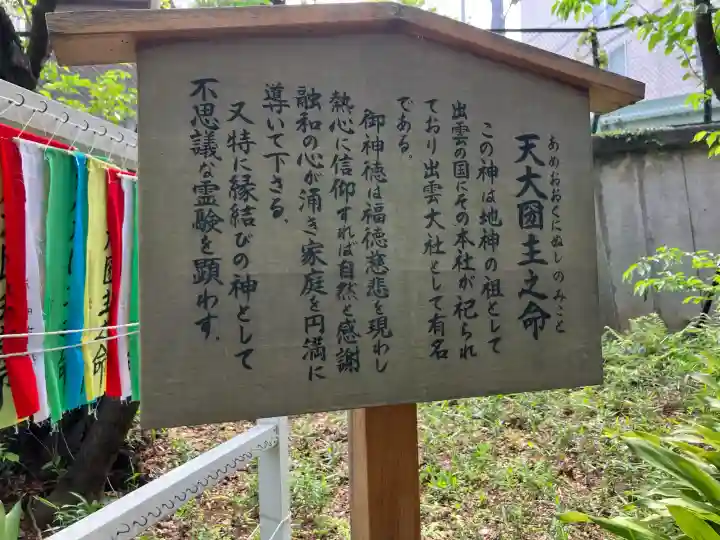 あめおおくにぬしのみこと
天大国主之命
この神は地神の祖として
出雲の国にその本社が祀られ
ており出雲大社として有名
である。
御神徳は福徳慈悲を現わし
熱心に信仰すれば自然と感謝
融和の心が涌き家庭を円満に
導いて下さる。
又特に縁結びの神として
不思議な霊験を顕わす。
国主之命